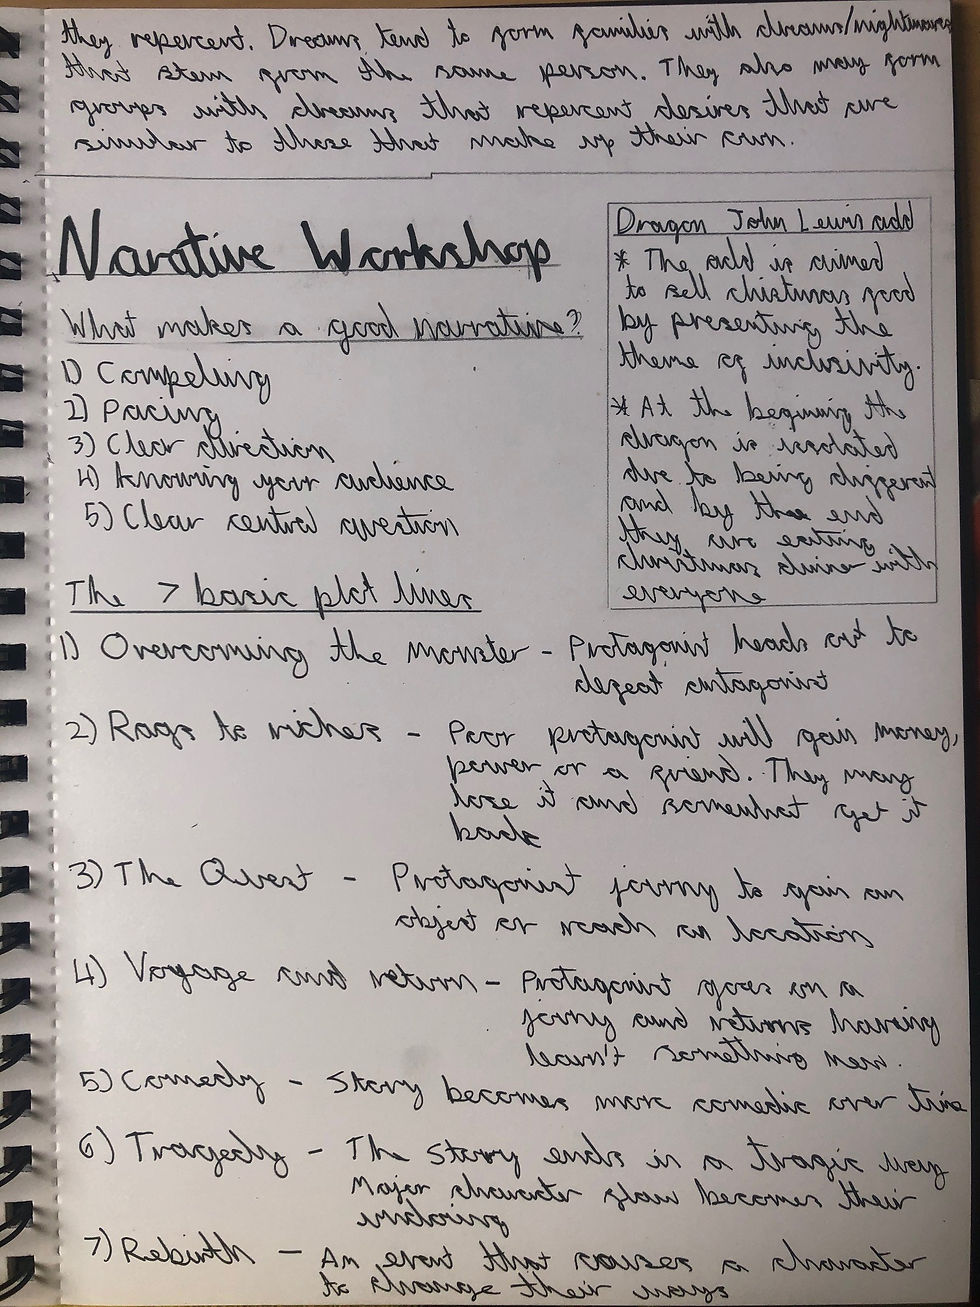 they repercent. Dreams tend to form families with dreams/nightmares
that stem from the same person. They also may form
groups with dreams that repercent desires that are
similar to those that make up their own.
Narative Workshop
What makes a good narrative?
1) Compeling
2) Pacing
3) Clear direction
4) Knowing your audience
5) Clear central question
Dragon John Lewis add
* The add is aimed
to sell chistmas food
by presenting the
theme of inclusivity.
* At the begining the
dragon is issolated
due to being different
and by the end
they are eating
christmas dinner with
everyone
The 7 basic plot lines
1) Overcoming the monster - Protagonist heads out to
defeat antagonist
2) Rags to riches - Poor protagonist will gain money,
power or a friend. They may
lose it and somewhat get it
back
3) The Quest - Protagonist jorny to gain an
object or reach an location
4) Voyage and return - Protagonist goes on a
jorny and returns having
learn't something new.
5) Comedy - Story becomes more comedic over time
6) Tragedy - The story ends in a tragic way
Major character flaw becomes their
undoing
7) Rebirth - An event that causes a character
to change their ways